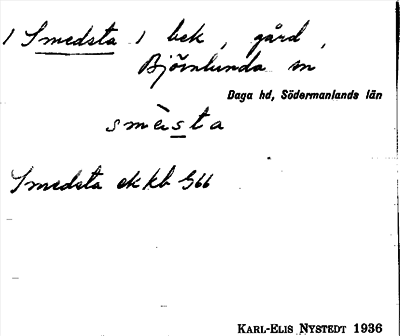 / Smedsta / bek, gård,
Björnlunda sn
Daga hd, Södermanlands län
smèsta
Smedsta ek kb 566
KARL-ELIS NYSTEDT 1936